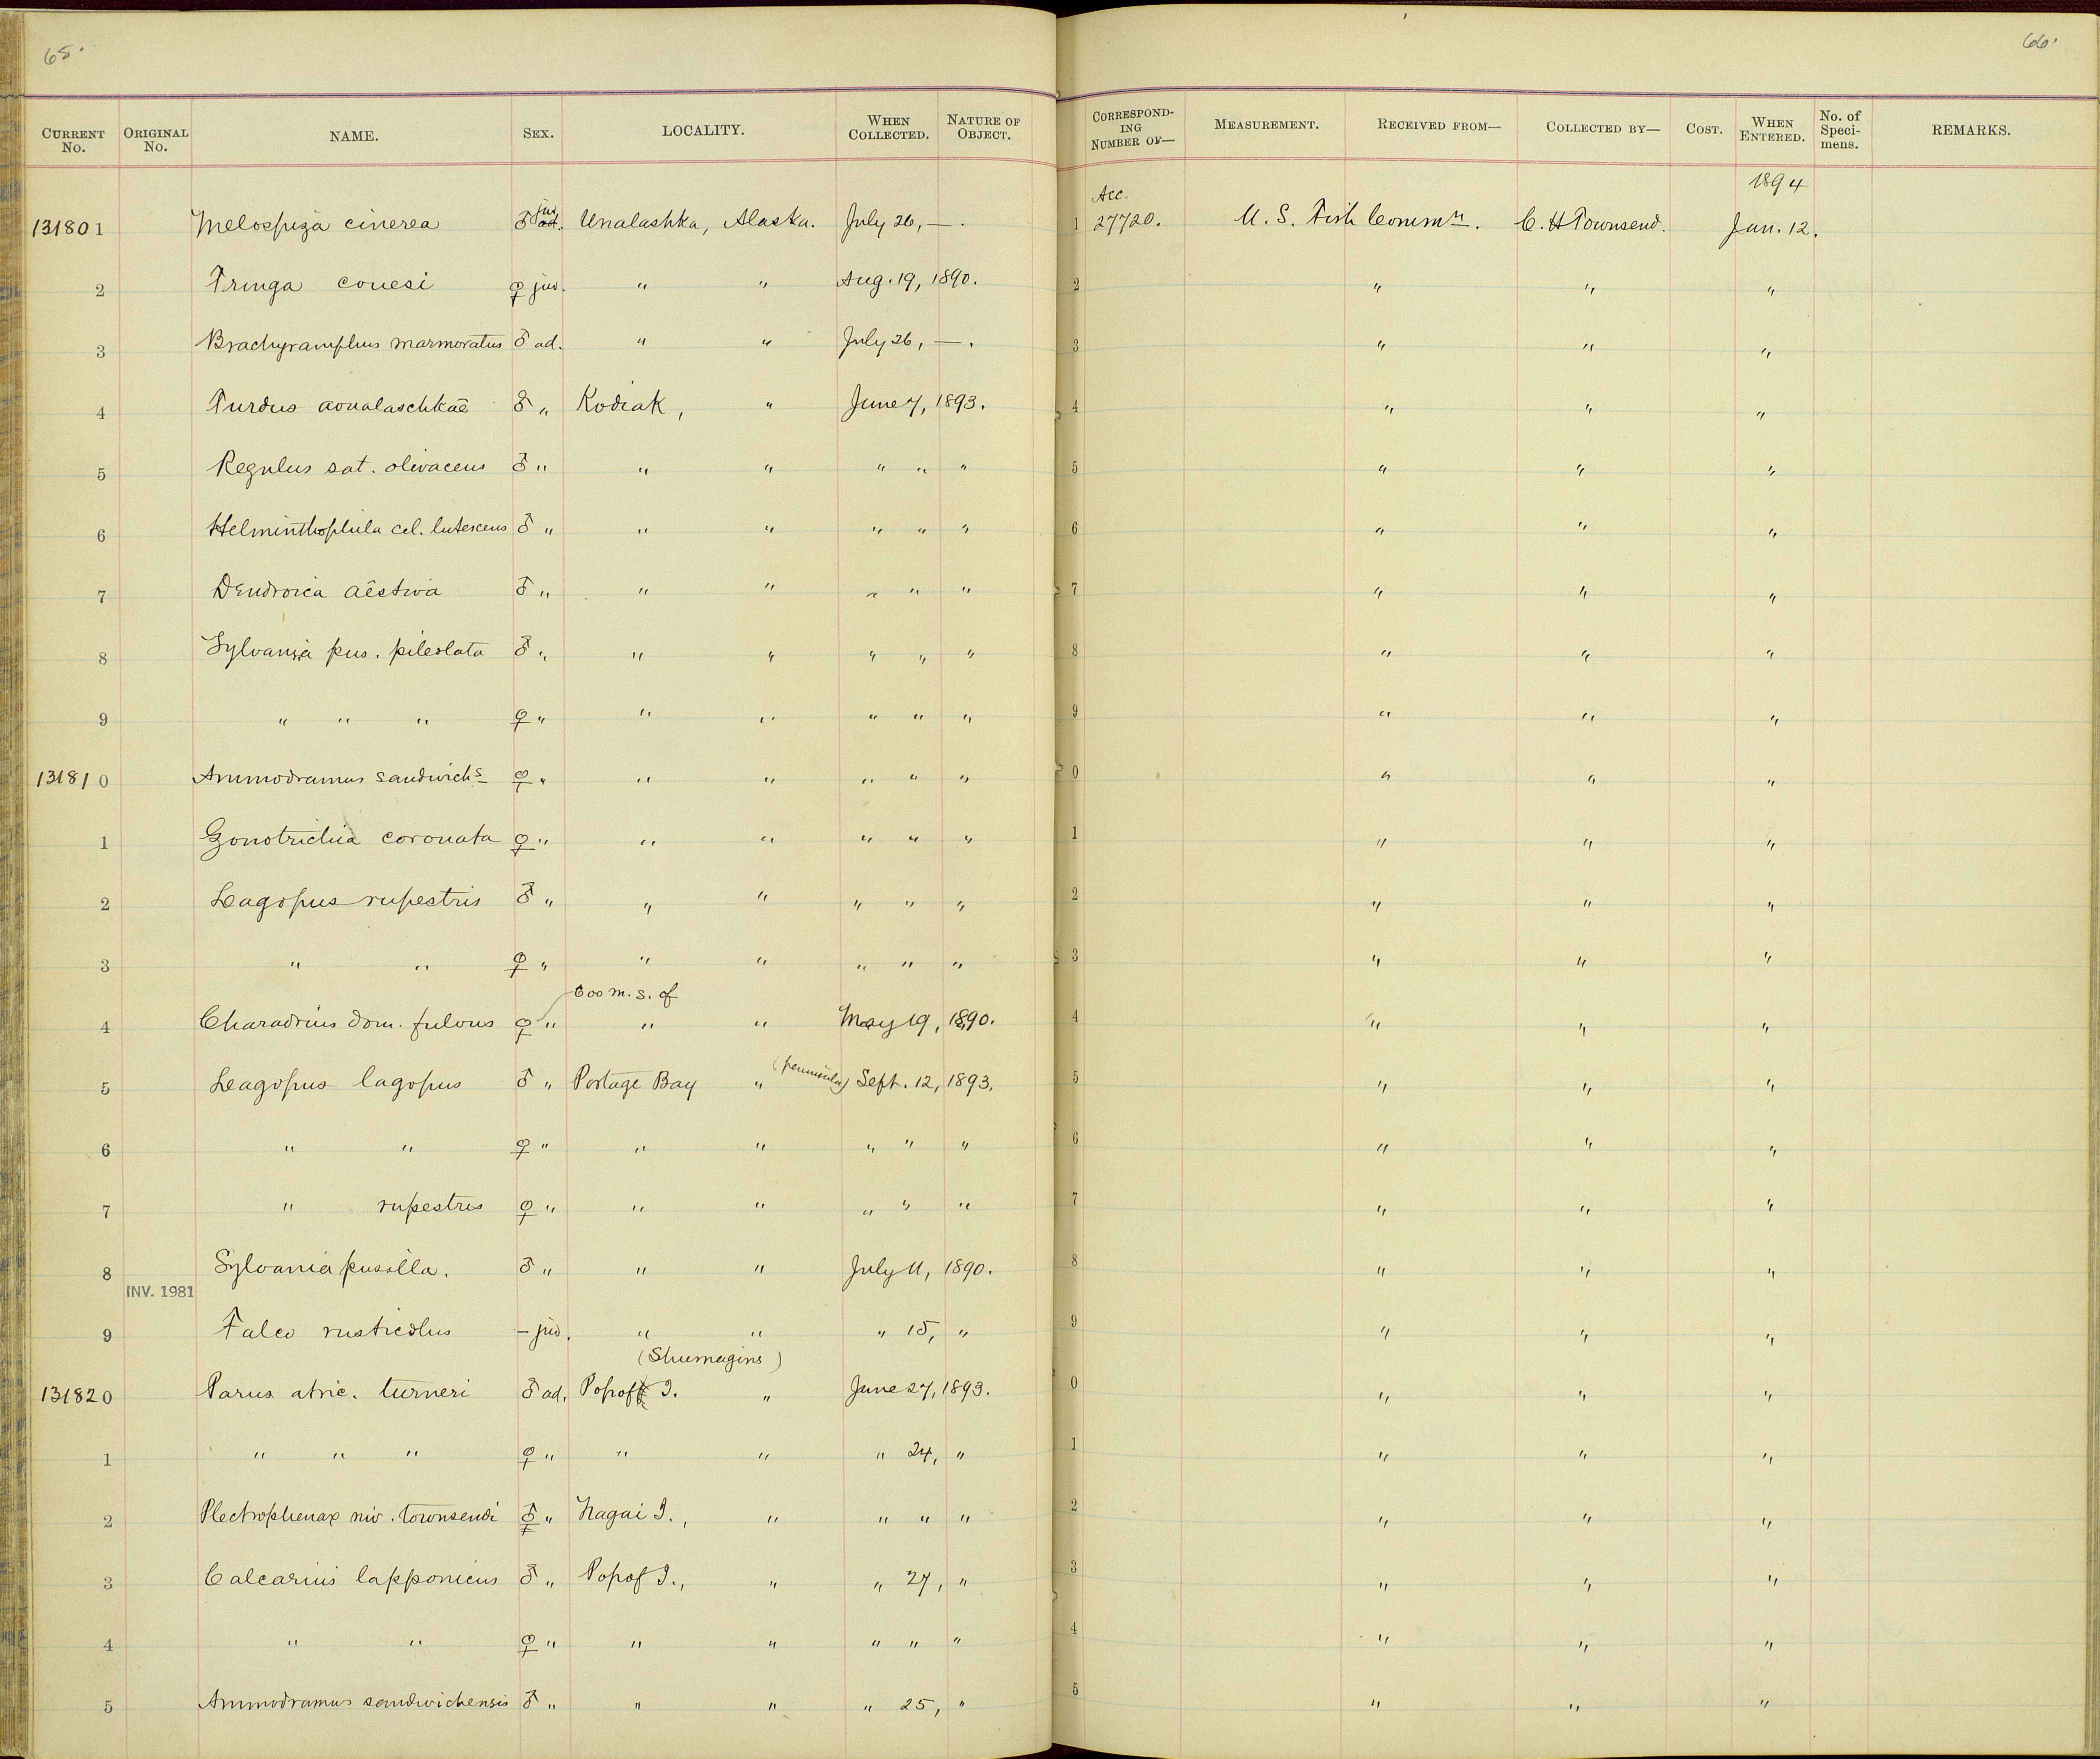 65.
66.
CURRENT No. ORIGINAL No. NAME. SEX. LOCALITY. WHEN COLLECTED. NATURE OF OBJECT. CORRESPONDING NUMBER OF— MEASUREMENT. RECEIVED FROM— COLLECTED BY— COST. WHEN ENTERED. No. of Specimens. REMARKS.
Acc. 1894
131801 Melospiza cinerea ♂ juv. ad. Unalashka, Alaska. July 26, —. 1 27720. U. S. Fish Commn. C. H Townsend. Jan. 12.
2 Tringa couesi ♀ juv. " " Aug. 19, 1890. 2 " " "
3 Brachyramphus marmoratus ♂ ad. " " July 26, —. 3 " " "
4 Turdus aonalaschkae ♂ " Kodiak, " June 7, 1893. 4 " " "
5 Regulus sat. olivaceus ♂ " " " " " " 5 " " "
6 Helminthophila cel. lutescens ♂ " " " " " " 6 " " "
7 Dendroica aestiva ♂ " " " " " " 7 " " "
8 Sylvania pus. pileolata ♂ " " " " " " 8 " " "
9 " " " ♀ " " " " " " 9 " " "
131810 Ammodramus sandwichs ♀ " " " " " " 0 " " "
1 Zonotrichia coronata ♀ " " " " " " 1 " " "
2 Lagopus rupestris ♂ " " " " " " 2 " " "
3 " " ♀ " " " " " " 3 " " "
600 m. s. of
4 Charadrius dom. fulvus ♀ " " " May 19, 1890. 4 " " "
5 Lagopus lagopus ♂ " Portage Bay " (peninsula) Sept. 12, 1893. 5 " " "
6 " " ♀ " " " " " " 6 " " "
7 " rupestris ♀ " " " " " " 7 " " "
8 Sylvania pusilla. ♂ " " " July 11, 1890. 8 " " "
INV. 1981
9 Falco rusticolus – juv. " " " 15, " 9 " " "
(Shumagins)
131820 Parus atric. turneri ♂ ad. Popof I. " June 27, 1893. 0 " " "
1 " " " ♀ " " " " 24, " 1 " " "
2 Plectrophenax niv. townsendi ⚥ " Nagai I., " " " " 2 " " "
3 Calcarius lapponicus ♂ " Popof I., " " 27, " 3 " " "
4 " " ♀ " " " " " " 4 " " "
5 Ammodramus sandwichensis ♂ " " " " 25, " 5 " " "